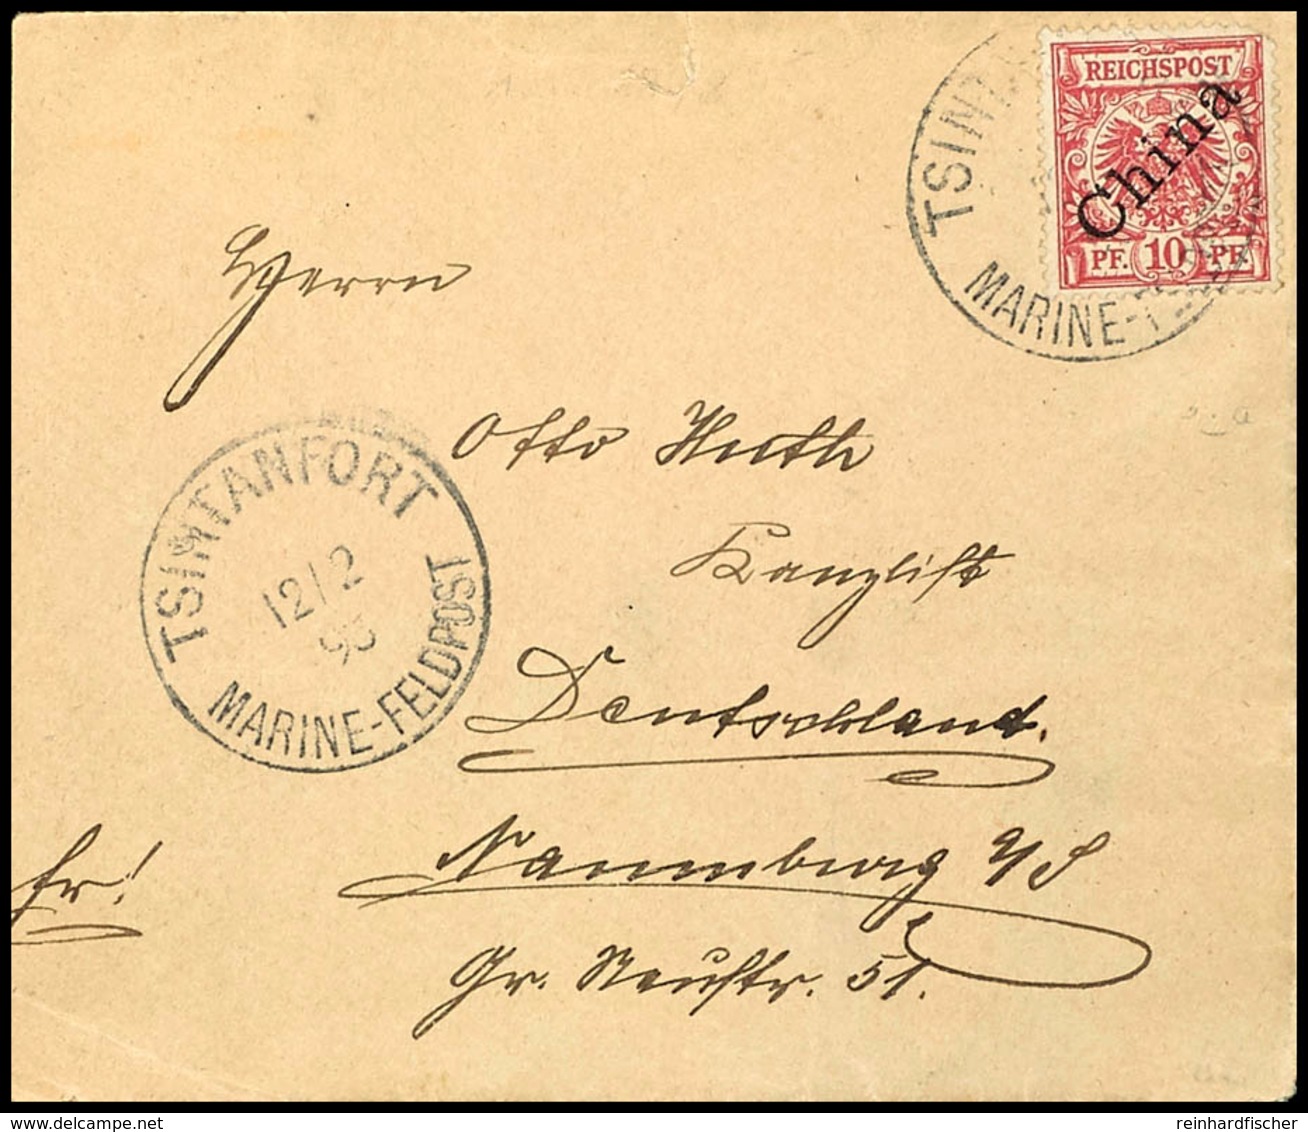 REICHSPOST
China
PF. 10 PF.
TSINTA
MARINE-F
Herrn
Otto Huth
Kanzlist
Deutschland.
Naumburg a/S
Gr. Neustr. 51.
TSINTANFORT
12/2
98
MARINE-FELDPOST
fr!
reinhardfischer
www.delcampe.net